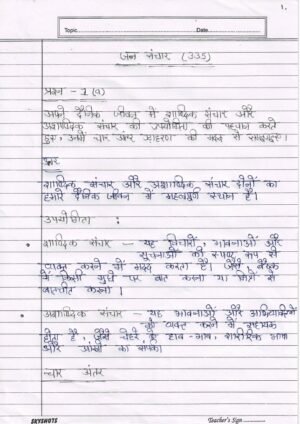 १.
Topic
Date
जन संचार (335)
प्रश्न - 1 (a)
अपने दैनिक जीवन में शाब्दिक संचार और
अशाब्दिक संचार की उपयोगिता की पहचान करते
हुए, उनमें चार अंतर उदाहरण की मदद से समझाइए।
उत्तर
शाब्दिक संचार और अशाब्दिक संचार दोनों का
हमारे दैनिक जीवन में महत्वपूर्ण स्थान है।
उपयोगिता :
• शाब्दिक संचार - यह विचारों, भावनाओं और
सूचनाओं को स्पष्ट रूप से
व्यक्त करने में मदद करता है। जैसे, बैठक
में किसी मुद्दे पर बात करना या फोन से
बातचीत करना।
• अशाब्दिक संचार - यह भावनाओं और अभिव्यक्तियों
को व्यक्त करने में सहायक
होता है, जैसे चेहरे के हाव-भाव, शारीरिक भाषा
और आंखों का संपर्क।
चार अंतर
SKYSHOTS
Teacher's Sign